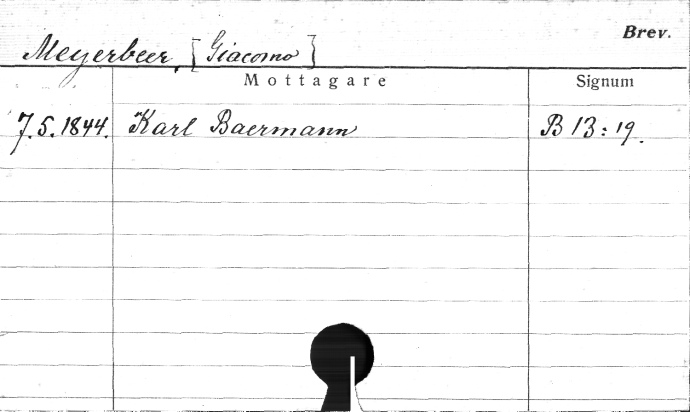 Brev.
Meyerbeer, [Giacomo]
Mottagare Signum
7.5.1844. Karl Baermann B 13:19.